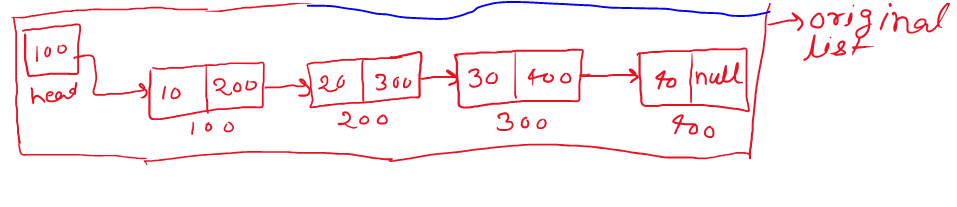 100
head
10 200
100
20 300
200
30 400
300
40 null
400
original
list